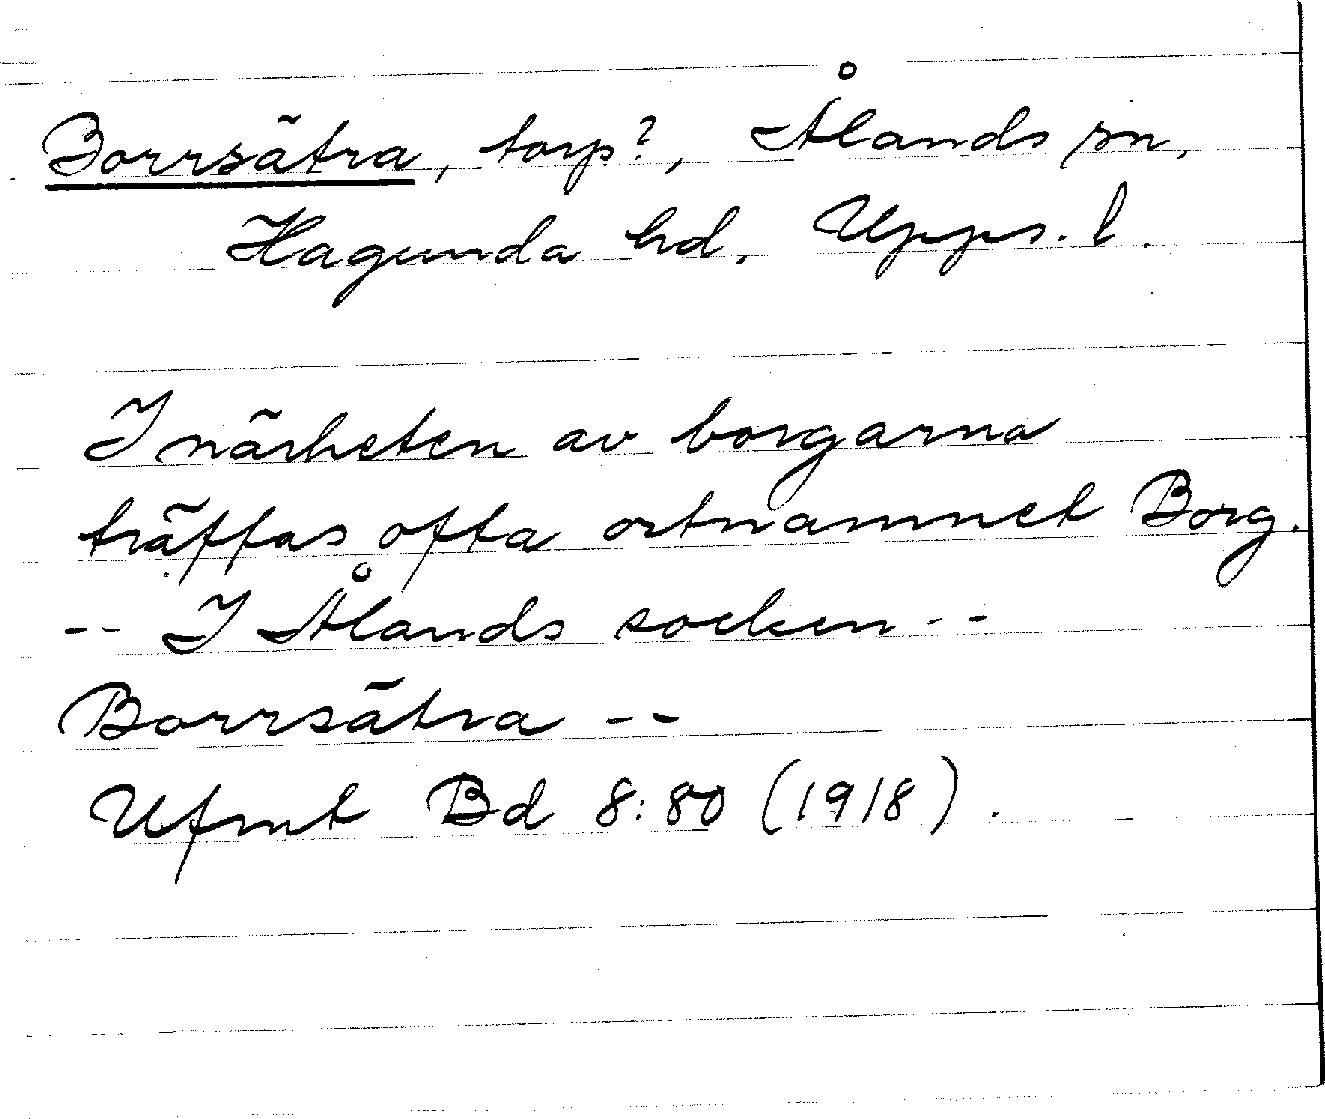 Borrsätra, torp?, Ålands sn,
Hagunda hd. Upps. l.
I närheten av borgarna
träffas ofta ortnamnet Borg.
-- I Ålands socken --
Borrsätra --
Ufmt Bd 8:80 (1918).